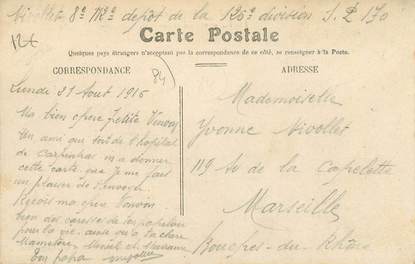 Nivollet 8e dépot de la 126e division S. P. 170
12€
Carte Postale
Quelques pays étrangers n'acceptent pas la correspondance de ce côté, se renseigner à la Poste.
CORRESPONDANCE
84
Lundi 21 Aout 1916
Ma bien chere petite
Un ami qui sort de l'hopital
de Carpentras m'a donner
cette carte que je me fais
un plaisir de
Reçois ma chere
bien des caresses de ton
pour la vie ainsi que ta chere
Mamitere
ton papa Nivollet
ADRESSE
Mademoiselle
Yvonne Nivollet
119 de la Capelette
Marseille
Bouches-du-Rhône